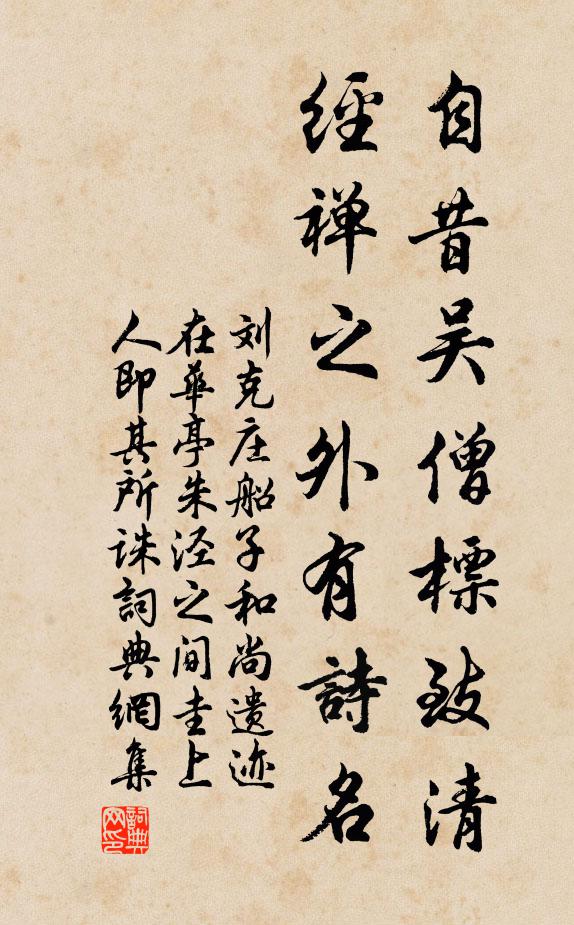 自昔吴僧標致清
經禅之外有詩名
刘克庄船子和尚遗迹
在華亭朱泾之间圭上
人即其所诛詞典網集
詞典网印